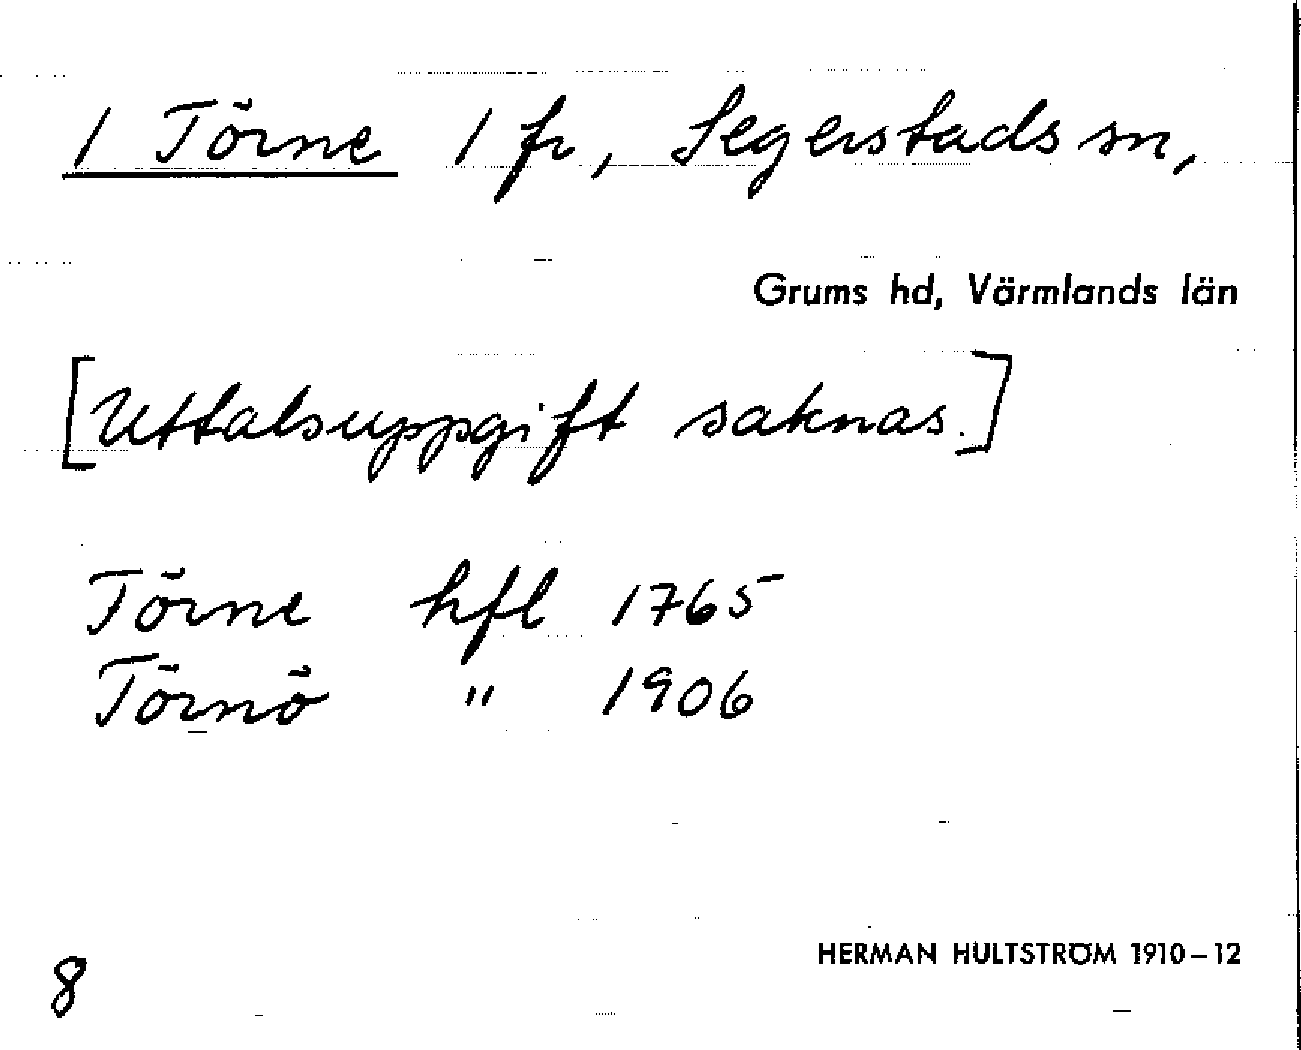 1 Törne 1 fr, Segerstads sn,
Grums hd, Värmlands län
[Uttalsuppgift saknas.]
Törne hfl 1765
Törnö " 1906
HERMAN HULTSTRÖM 1910–12
8